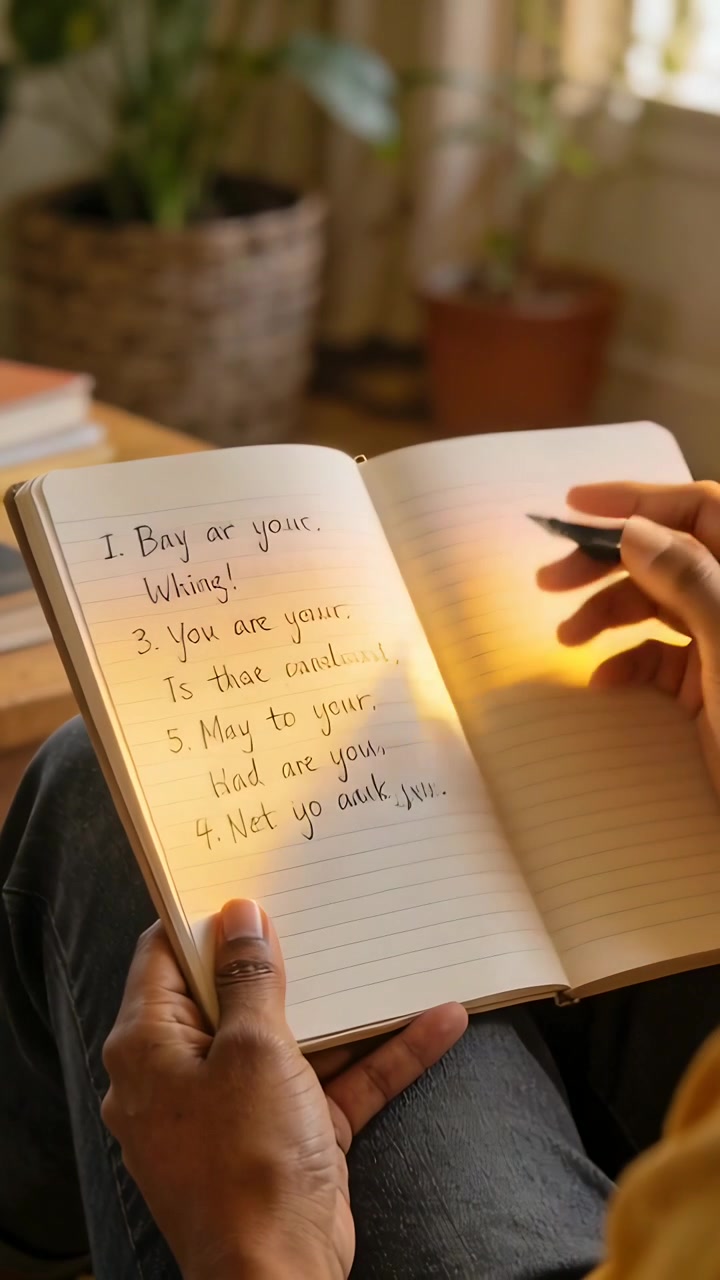 1. Bay ar your.
Whing!
3. You are your.
Is thae
5. May to your,
Had are you,
4. Net yo aulk